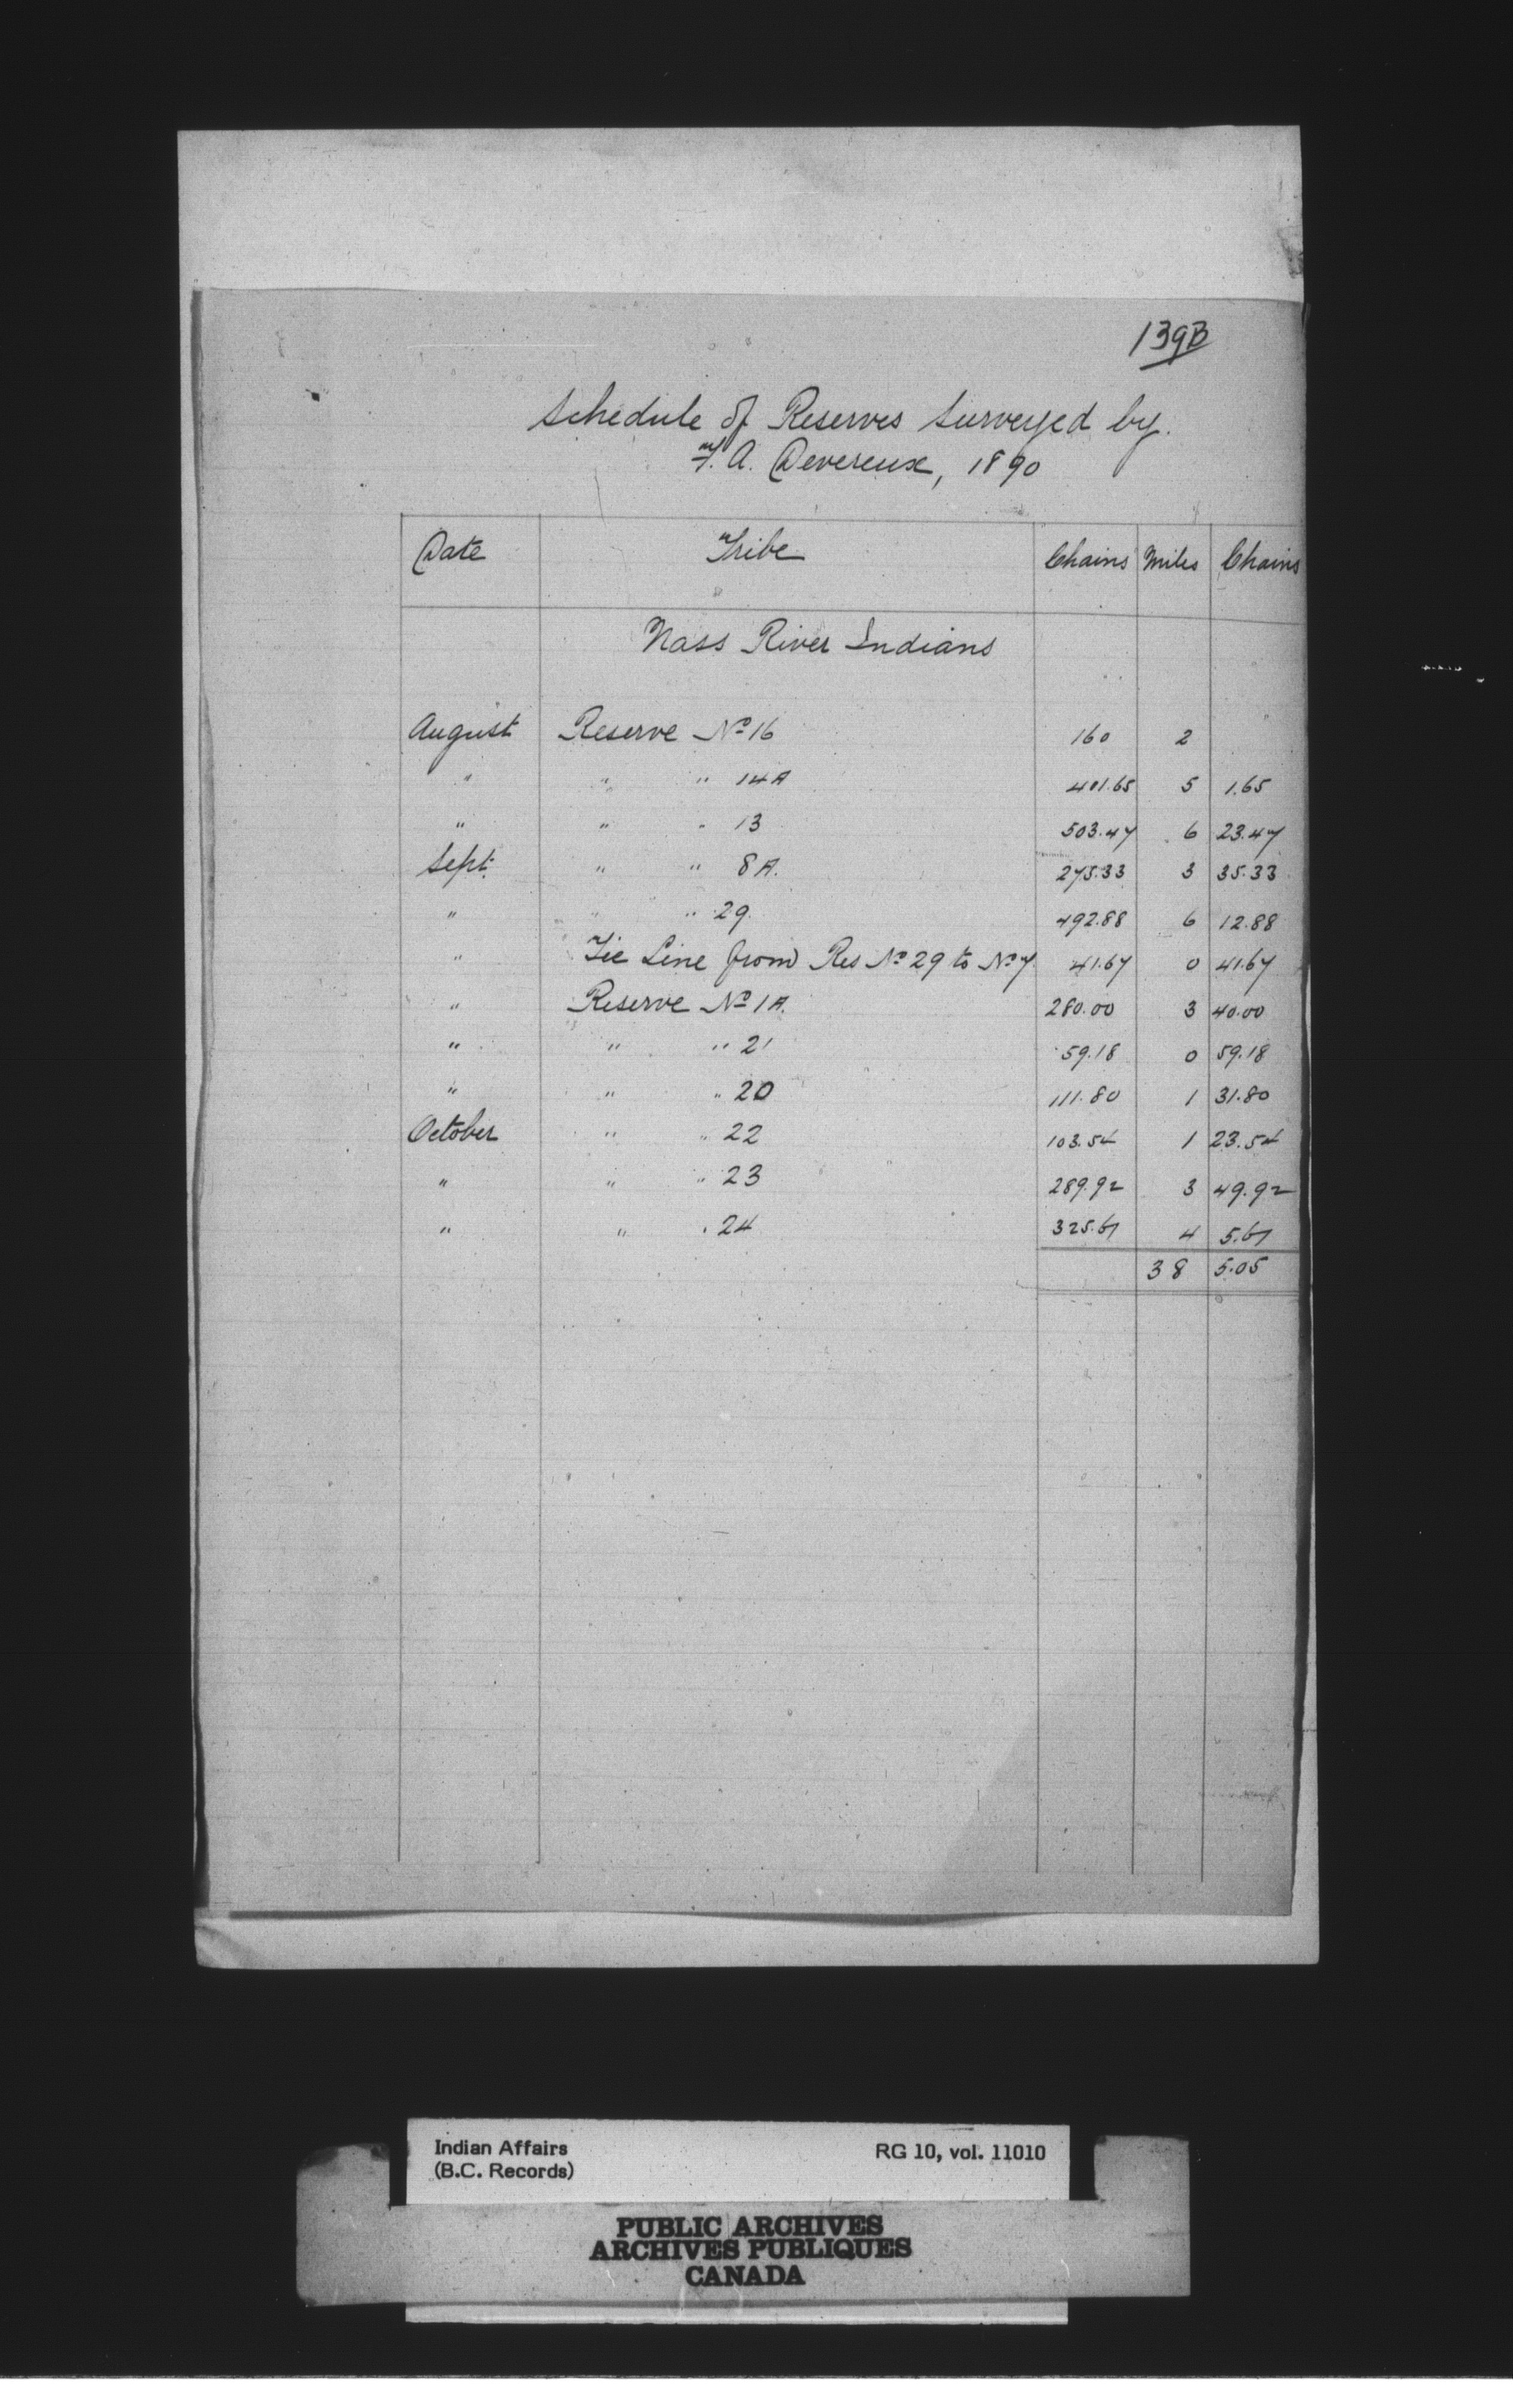 139B
Schedule of Reserves Surveyed by
F. A. Devereux, 1890
Date Tribe Chains Miles Chains
Nass River Indians
August Reserve No 16 160 2
" " " 14A 401.65 5 1.65
" " " 13 503.47 6 23.47
Sept. " " 8A. 275.33 3 35.33
" " " 29. 492.88 6 12.88
" Tie Line from Res No 29 to No 7 41.67 0 41.67
" Reserve No 1A. 280.00 3 40.00
" " " 21 59.18 0 59.18
" " " 20 111.80 1 31.80
October " " 22 103.54 1 23.54
" " " 23 289.92 3 49.92
" " " 24 325.61 4 5.61
38 5.05
Indian Affairs RG 10, vol. 11010
(B.C. Records)
PUBLIC ARCHIVES
ARCHIVES PUBLIQUES
CANADA